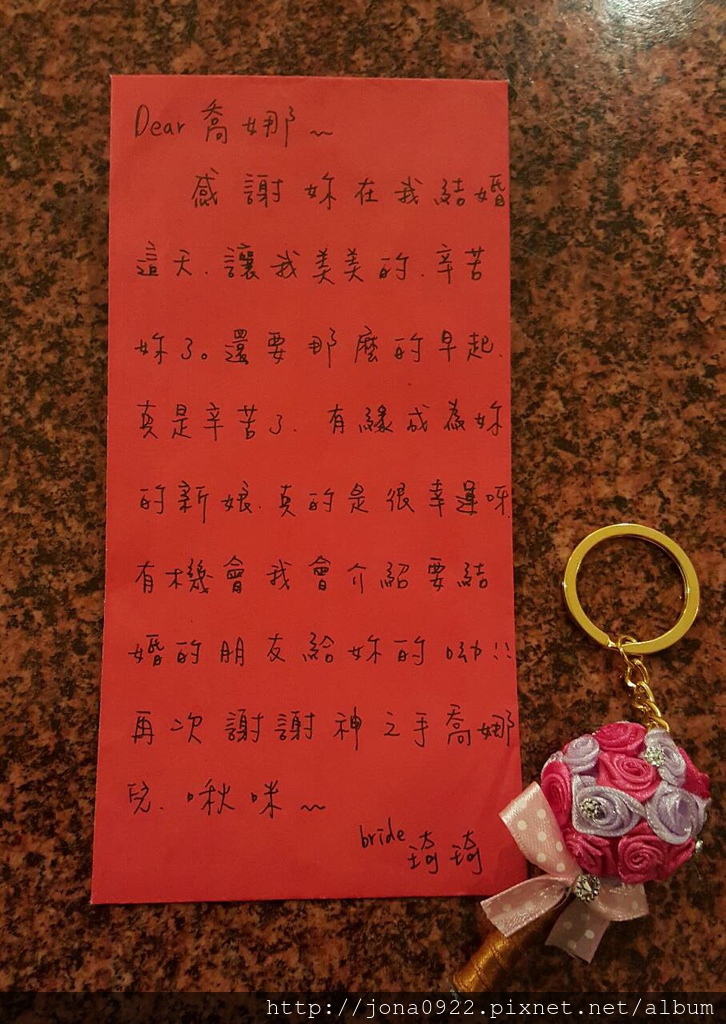 Dear 喬娜~
感謝妳在我結婚
這天.讓我美美的.辛苦
妳了。還要那麼的早起.
真是辛苦了.有緣成為妳
的新娘.真的是很幸運呀
有機會我會介紹要結
婚的朋友給妳的呦!!
再次謝謝神之手喬娜
兒.啾咪~
bride 琦琦
http://jona0922.pixnet.net/album